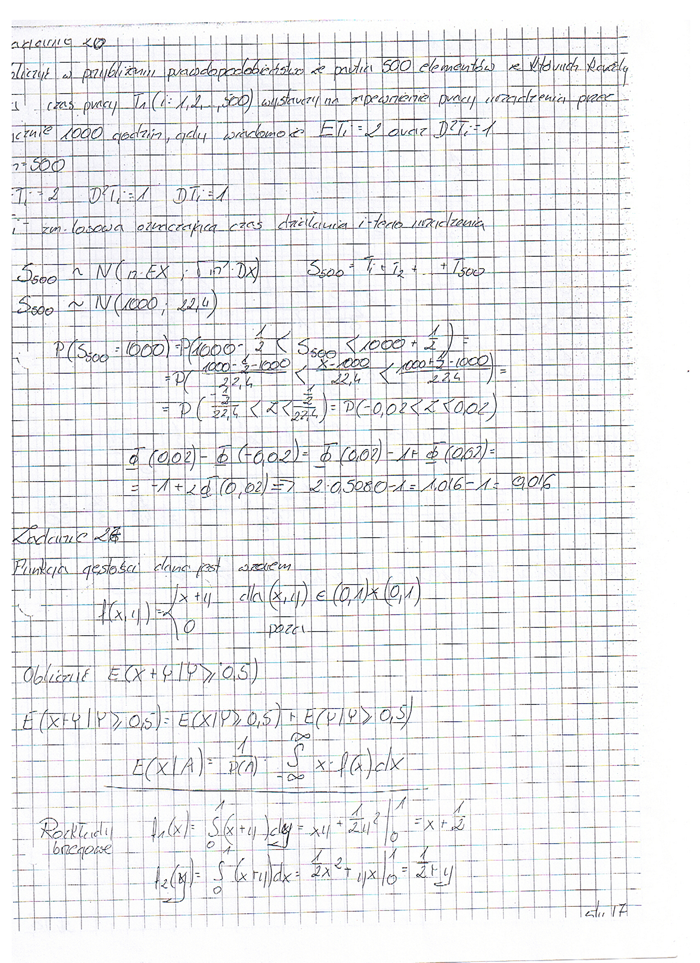 Zadanie 20
Obliczyć w przybliżeniu prawdopodobieństwo że partia 500 elementów z których każdy
czas pracy Ti (i=1,2,...,500) wystarczy na zapewnienie pracy urządzenia przez
łącznie 1000 godzin, gdy wiadomo że ETi=2 oraz D²Ti=1
n=500
Ti=2 D²Ti=1 DTi=1
i - zm. losowa oznaczająca czas działania i-tego urządzenia
S500 ~ N(n·EX ; √n·DX) S500 = T1+T2+...+T500
S500 ~ N(1000; 22,4)
P(S500=1000)=P(1000-1/2 < S500 < 1000+1/2)=
=P((1000-1/2-1000)/22,4 < (x-1000)/22,4 < (1000+1/2-1000)/22,4)=
=P((-1/2)/22,4 < Z < (1/2)/22,4)=P(-0,02<Z<0,02)
Φ(0,02)-Φ(-0,02)=Φ(0,02)-1+Φ(0,02)=
=-1+2Φ(0,02)=> 2·0,5080-1=1,016-1=0,016
Zadanie
Funkcja gęstości dana jest wzorem
f(x,y)={x+y dla (x,y)∈(0,1)x(0,1)
0 poza
Obliczyć E(X+Y|Y≥0,5)
E(X+Y|Y≥0,5)=E(X|Y≥0,5)+E(Y|Y≥0,5)
E(X|A)=1/P(A) ∫_{-∞}^{∞} x·f(x)dx
Rozkłady f1(x)=∫_0^1(x+y)dy=xy+1/2y²|_0^1=x+1/2
brzegowe
f2(y)=∫_0^1(x+y)dx=1/2x²+yx|_0^1=1/2+y
str 17